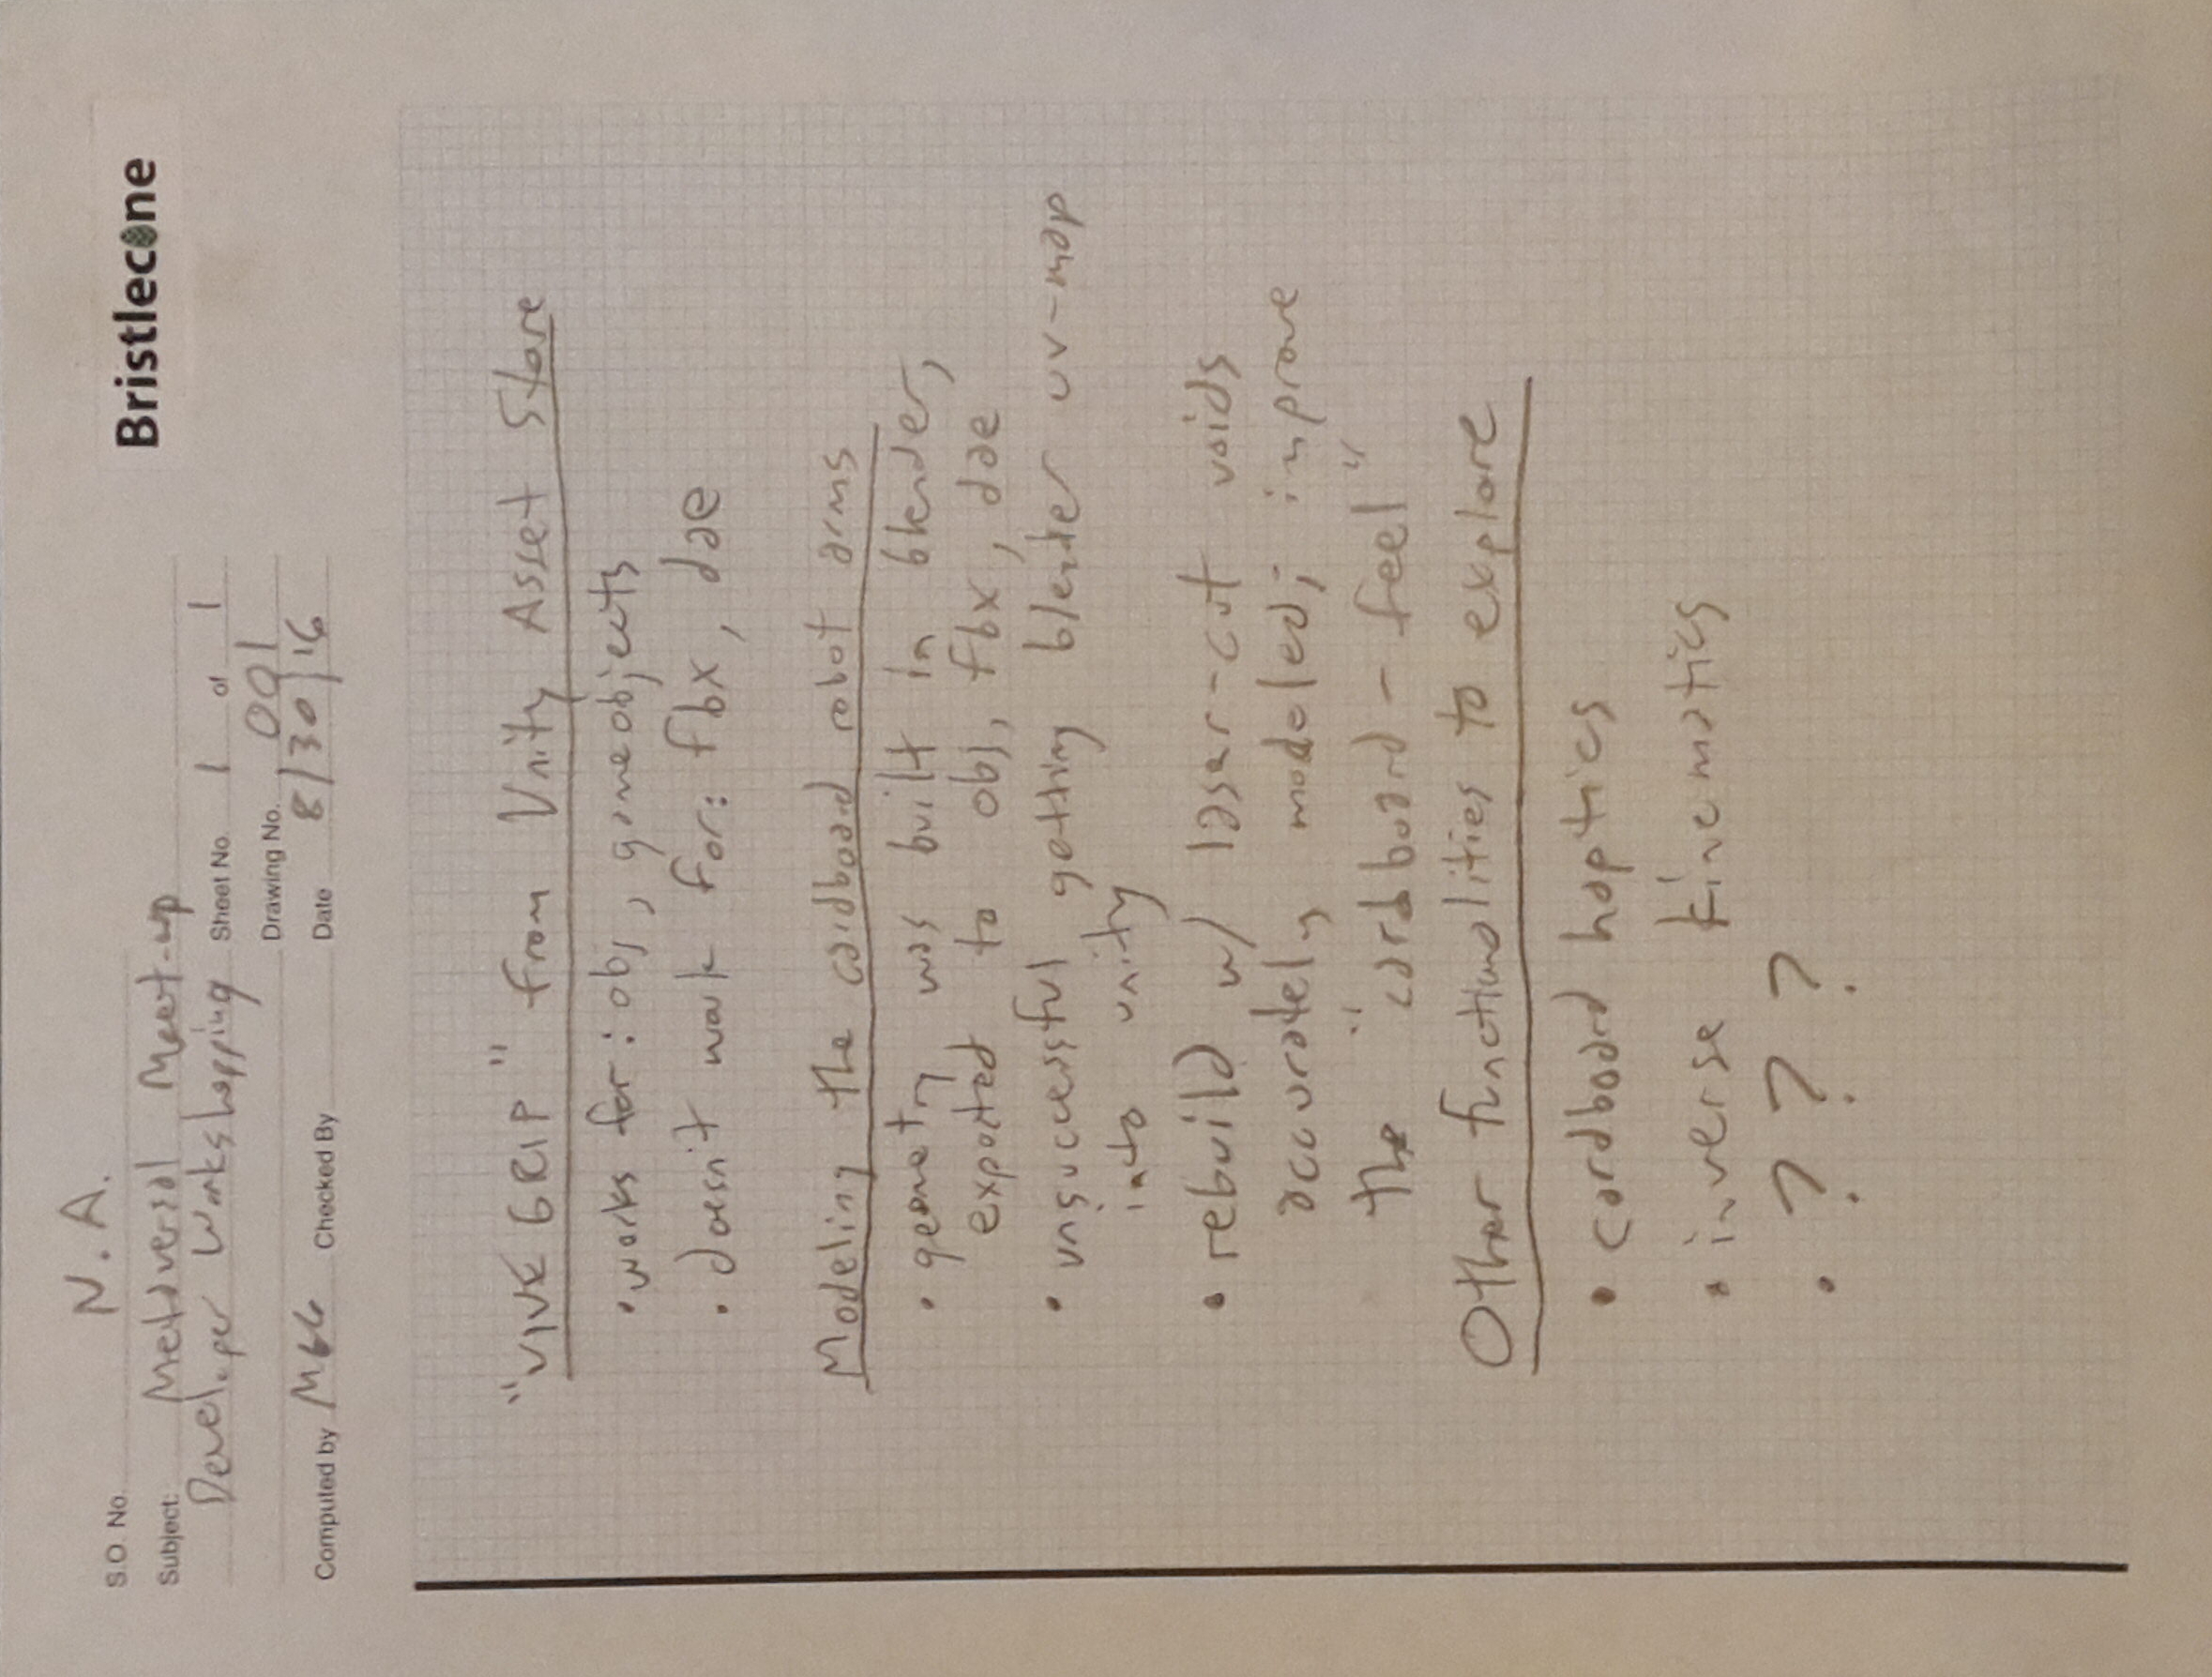 Bristlecone
S.O. No. N.A.
Subject: Metaversal Meet-up
Developer Workshopping
Sheet No. 1 of 1
Drawing No. 001
Computed by MGG Checked By Date 8/30/16
"VIVE GRIP" from Unity Asset Store
• works for: obj, gameobjects
• doesn't work for: fbx, dae
Modeling the cardboard robot arms
• geometry was built in blender,
exported to obj, fbx, dae
• unsuccessful getting blender uv-map
into unity
• rebuild w/ lasar-cut voids
accurately modeled; improve
the "cardboard-feel"
Other functionalities to explore
• cardboard haptics
• inverse kinematics
• ? ? ?